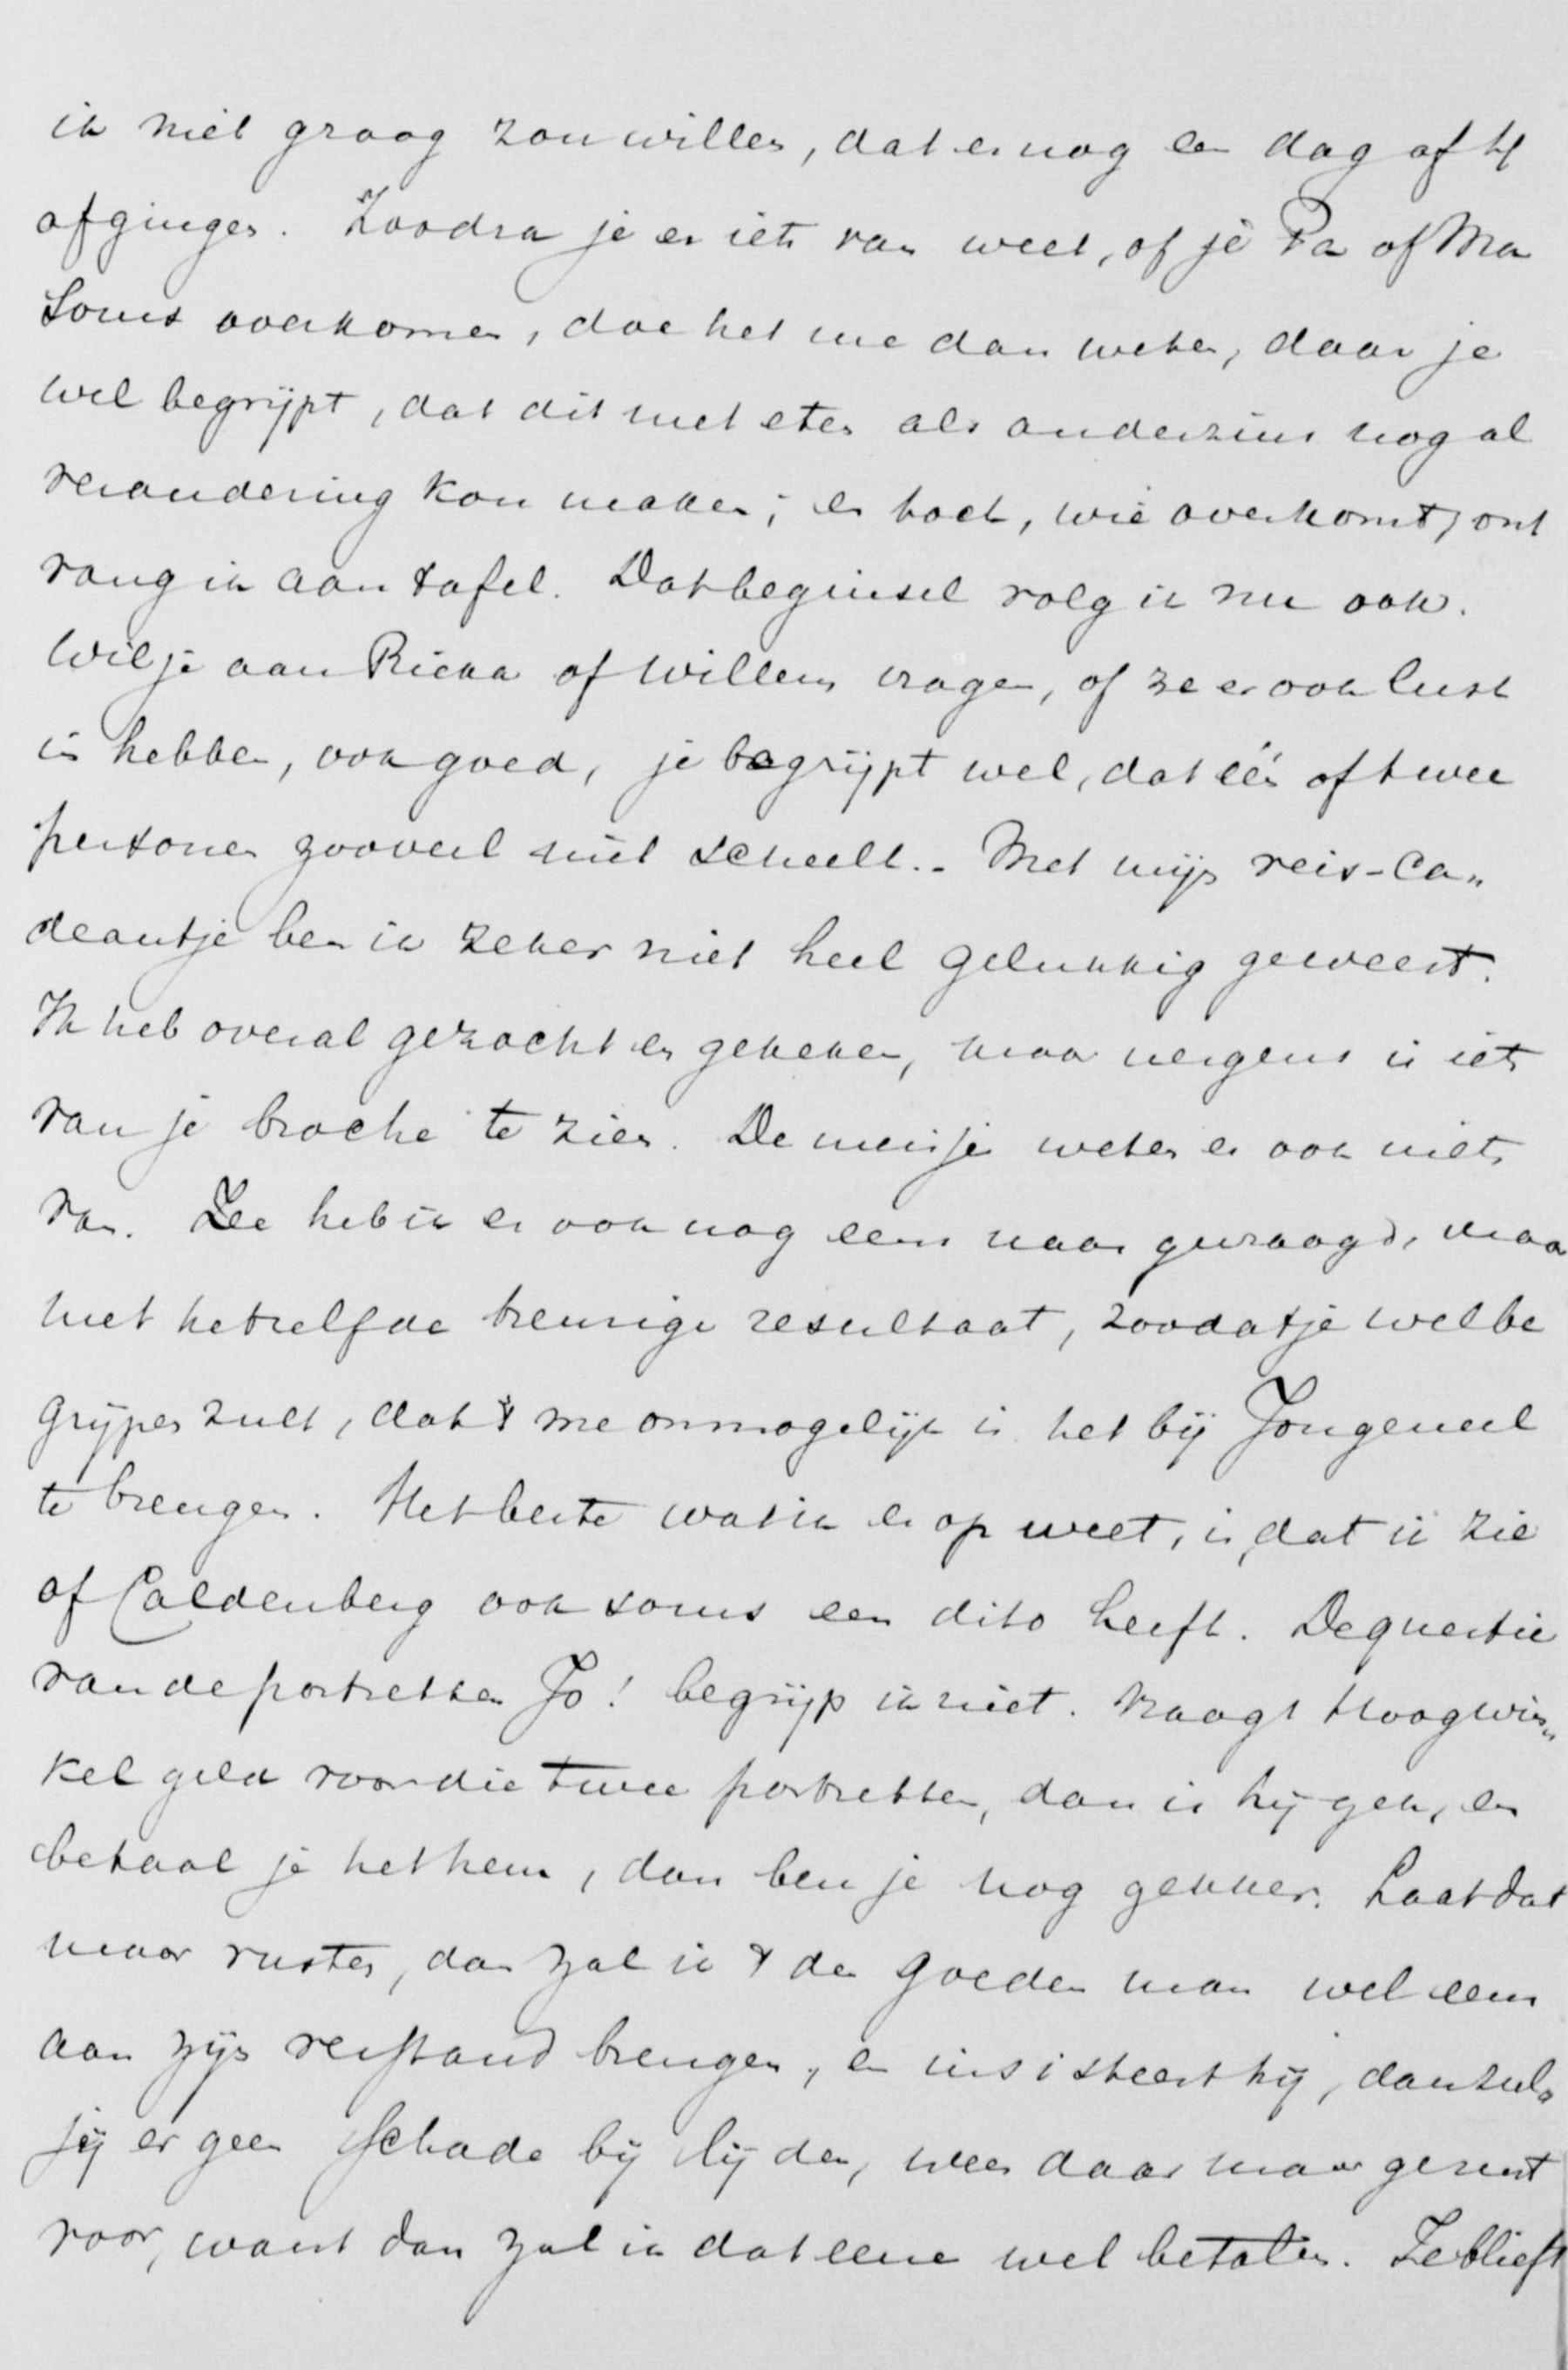 ik niet graag zou willen, dat er nog een dag af
afgingen. Zoodra je er iets van weet, of je Pa of Ma
soms overkomen, doe het me dan weten, daar je
wel begrijpt, dat dit met eten als anderzins nog al
verandering kon maken; en toch, wie overkomt, ont
vang ik aan tafel. Dat beginsel volg ik nu ook.
Wil je aan Rieka of Willem vragen, of ze er ook lust
in hebben, ook goed, je begrijpt wel, dat één of twee
personen zooveel niet scheelt.- Met mijn reis-ca„
deautje ben ik zeker niet heel gelukkig geweest.
Ik heb overal gezocht en gekeken, maar nergens is iets
van je broche te zien. De meisjes weten er ook niets
van. Zee heb ik er ook nog eens naar gevraagd, maar
met hetzelfde treurige resultaat, zoodat je wel be
grijpen zult, dat 't me onmogelijk is het bij Jongeneel
te brengen. Het beste wat ik er op weet, is, dat ik zie
of Caldenberg ook soms een dito heeft. De questie
van de portretten Jo! begrijp ik niet. Vraagt Hoogwin„
kel geld voor die twee portretten, dan is hij gek, en
betaal je het hem, dan ben je nog gekker. Laat dat
maar rusten, dan zal ik den goeden man wel eens
aan zijn verstand brengen, en insisteert hij, dan zul
jij er geen schade bij lijden, wees daar maar gerust
voor, want dan zal ik dat eene wel betalen. Ze blieft